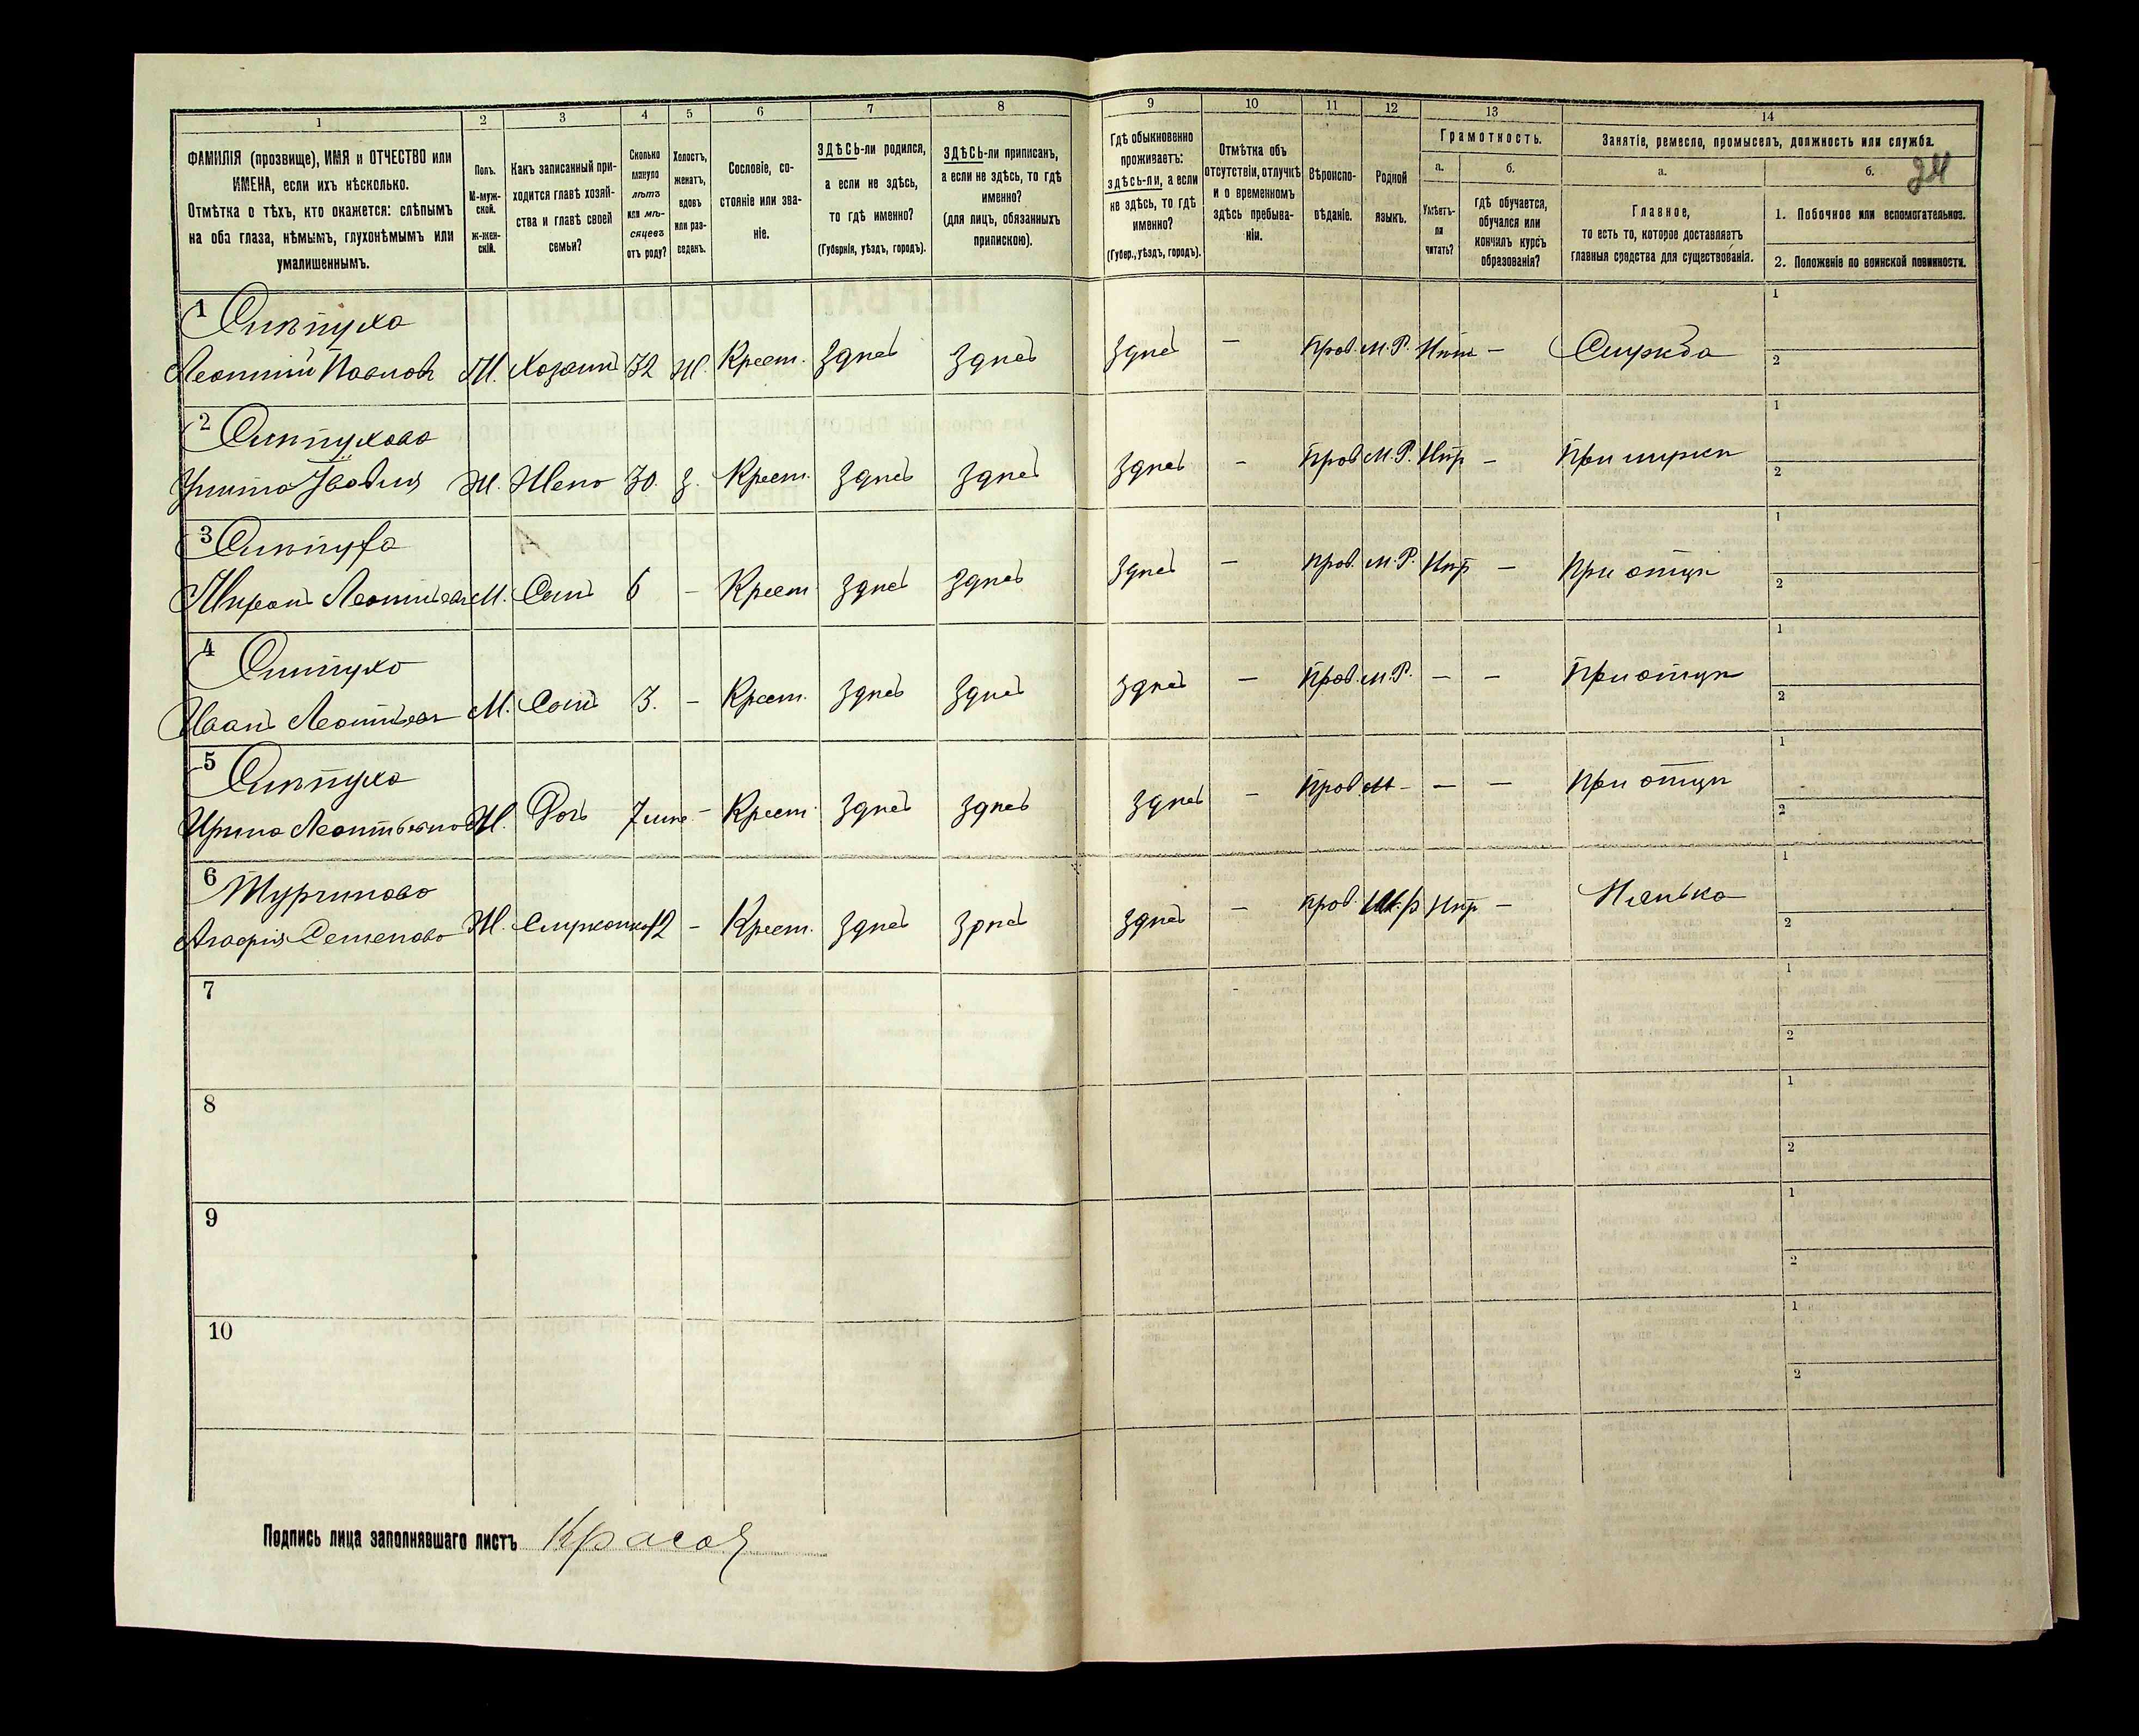 1 2 3 4 5 6 7 8 9 10 11 12 13 14
ФАМИЛІЯ (прозвище), ИМЯ и ОТЧЕСТВО или
ИМЕНА, если ихъ нѣсколько.
Отмѣтка о тѣхъ, кто окажется: слѣпымъ
на оба глаза, нѣмымъ, глухонѣмымъ или
умалишеннымъ.
Полъ.
М-муж-
ской.
Ж-жен-
скій.
Какъ записанный при-
ходится главѣ хозяй-
ства и главѣ своей
семьи?
Сколько
минуло
лѣтъ
или мѣ-
сяцевъ
отъ роду?
Холостъ,
женатъ,
вдовъ
или раз-
веденъ.
Сословіе, со-
стояніе или зва-
ніе.
ЗДѢСЬ-ли родился,
а если не здѣсь,
то гдѣ именно?
(Губернія, уѣздъ, городъ).
ЗДѢСЬ-ли приписанъ,
а если не здѣсь, то гдѣ
именно?
(для лицъ, обязанныхъ
припискою).
Гдѣ обыкновенно
проживаетъ:
здѣсь-ли, а если
не здѣсь, то гдѣ
именно?
(Губер., уѣздъ, городъ).
Отмѣтка объ
отсутствіи, отлучкѣ
и о временномъ
здѣсь пребыва-
ніи.
Вѣроиспо-
вѣданіе.
Родной
языкъ.
Грамотность.
а.
Умѣетъ-
ли
читать?
б.
гдѣ обучается,
обучался или
кончилъ курсъ
образованія?
Занятіе, ремесло, промыселъ, должность или служба.
а.
Главное,
то есть то, которое доставляетъ
главныя средства для существованія.
б.
24
1. Побочное или вспомогательное.
2. Положеніе по воинской повинности.
1
Леонтій Павловъ М. Хозяинъ 32 Ж. Крест. Здѣсь Здѣсь Здѣсь — Прав. М.Р. Нѣтъ — Служба
1
2
2
Ж. Жена 30. З. Крест. Здѣсь Здѣсь Здѣсь — Прав. М.Р. Нѣт — При мужѣ
1
2
3
Миронъ Леонтьевъ М. Сынъ 6 — Крест. Здѣсь Здѣсь Здѣсь — Прав. М.Р. Нѣт — При отцѣ
1
2
4
Иванъ Леонтьевъ М. Сынъ 3. — Крест. Здѣсь Здѣсь Здѣсь — Прав. М.Р. — — При отцѣ
1
2
5
Ирина Леонтьевна Ж. Дочь 7 — Крест. Здѣсь Здѣсь Здѣсь — Прав. М — — — При отцѣ
1
2
6
Агафія Семенова Ж. 12 — Крест. Здѣсь Здѣсь Здѣсь — Прав. М.Р Нѣт — Нянька
1
2
7
1
2
8
1
2
9
1
2
10
1
2
Подпись лица заполнявшаго листъ